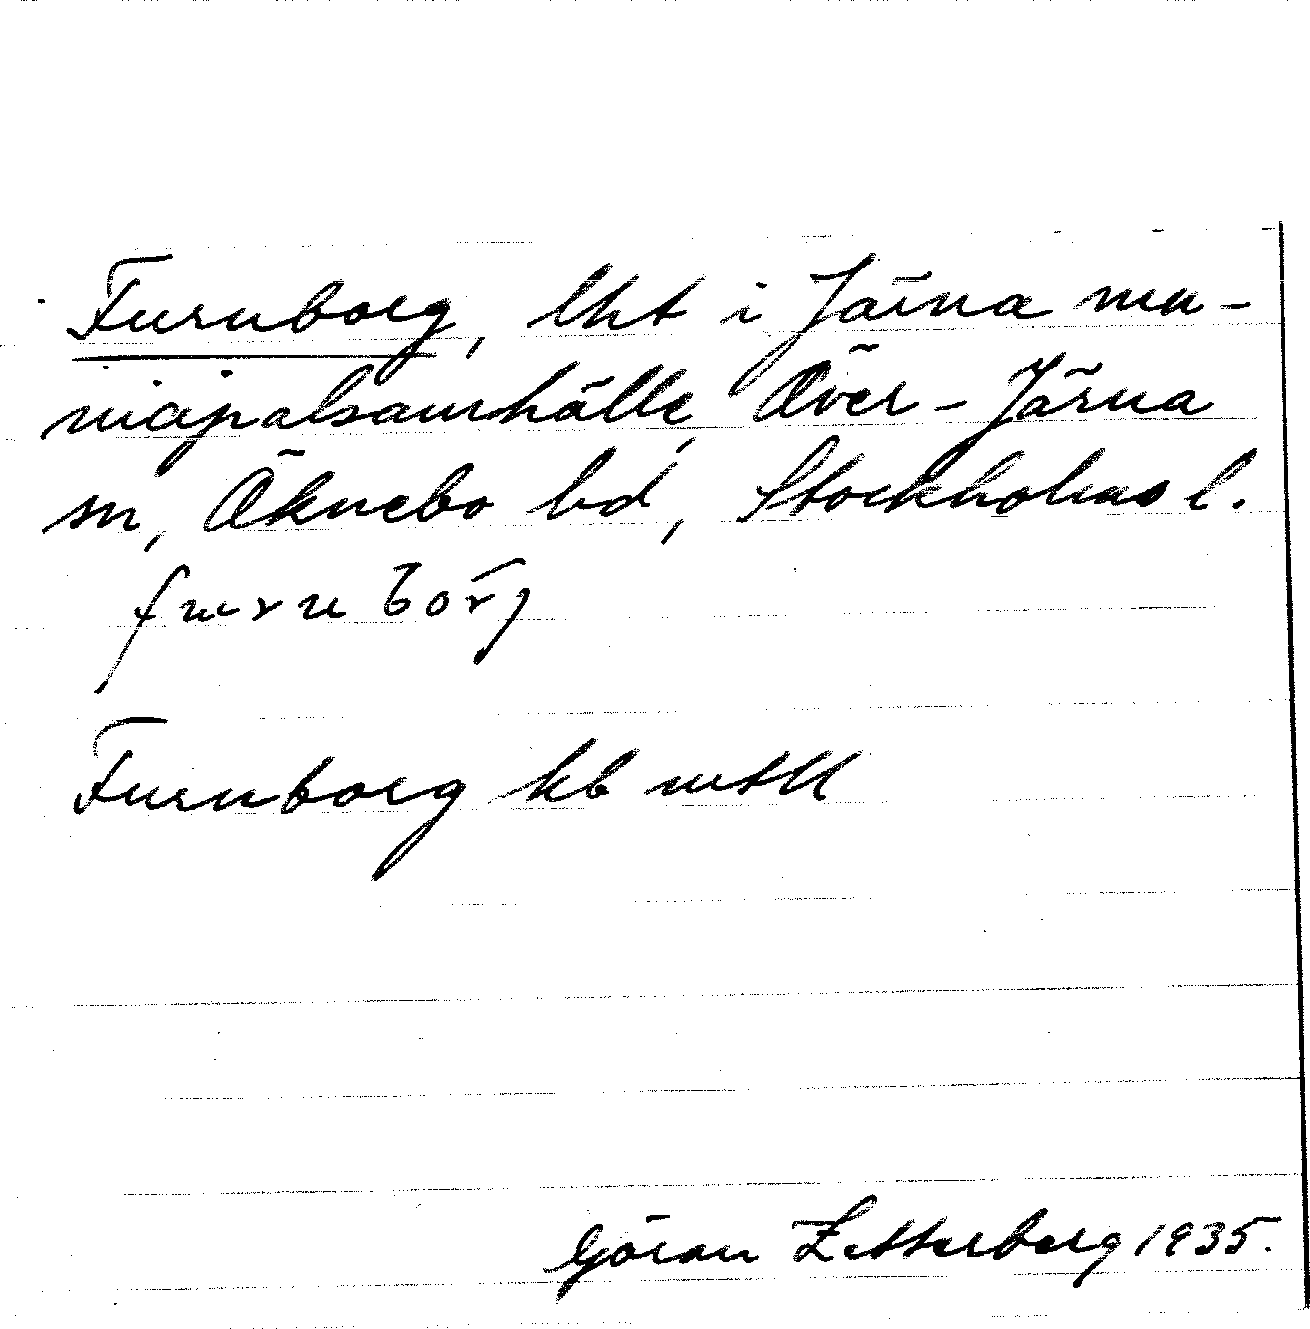 Furuborg, lht i Järna mu-
nicipalsamhälle, Över-Järna
sn, Öknebo hd, Stockholms l.
Furuborg kb mtll
Göran Zetterberg 1935.